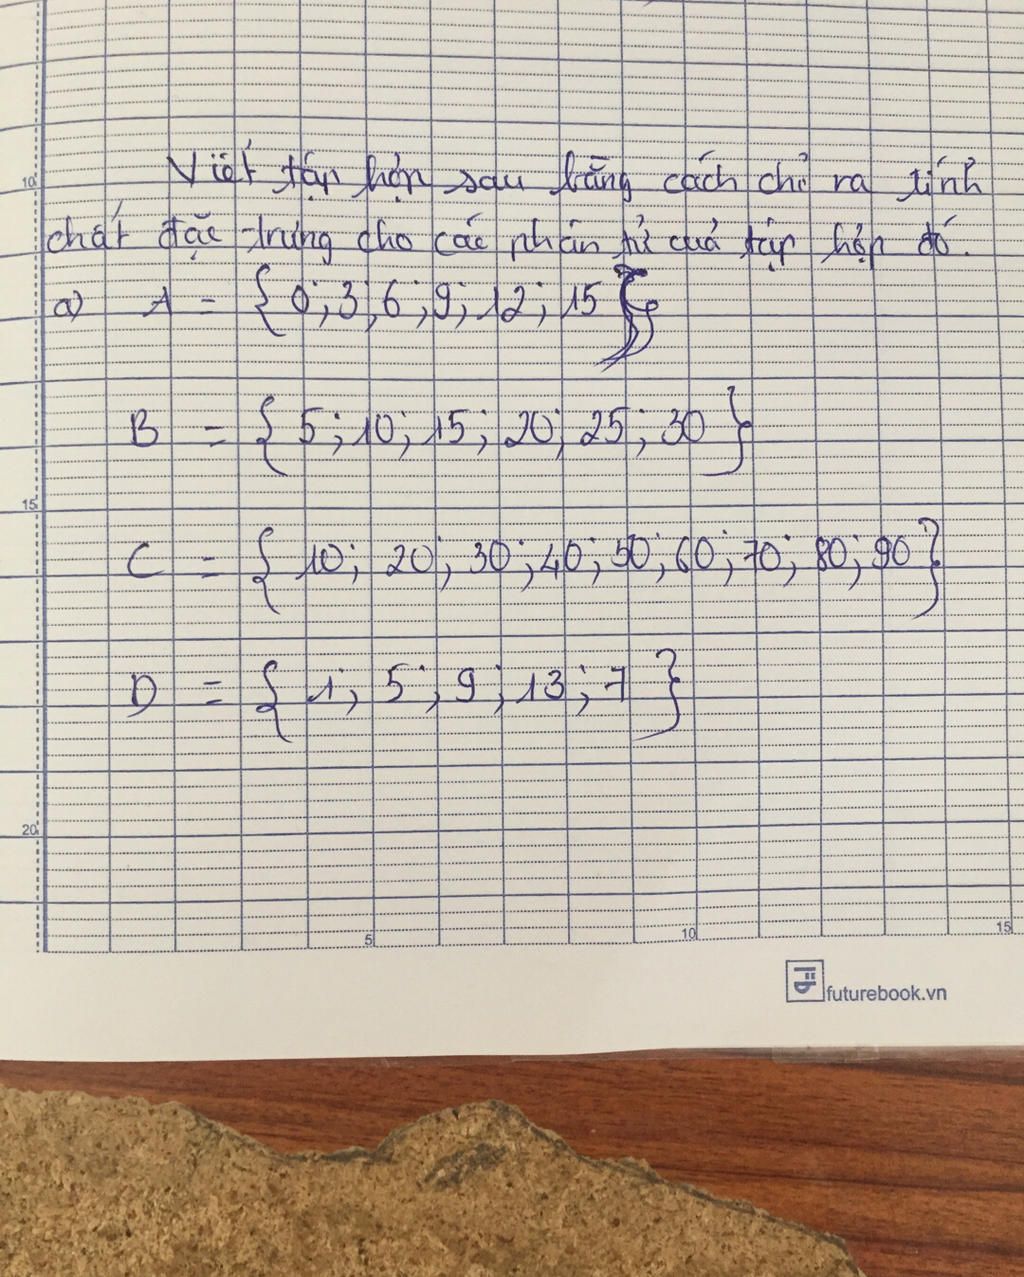 Viết tập hợp sau bằng cách chỉ ra tính
chất đặc trưng cho các phần tử quả tập hợp đó.
a) A = {0; 3; 6; 9; 12; 15}
B = {5; 10; 15; 20; 25; 30}
C = {10; 20; 30; 40; 50; 60; 70; 80; 90}
D = {1; 5; 9; 13; 7}
10
15
20
5
10
15
futurebook.vn